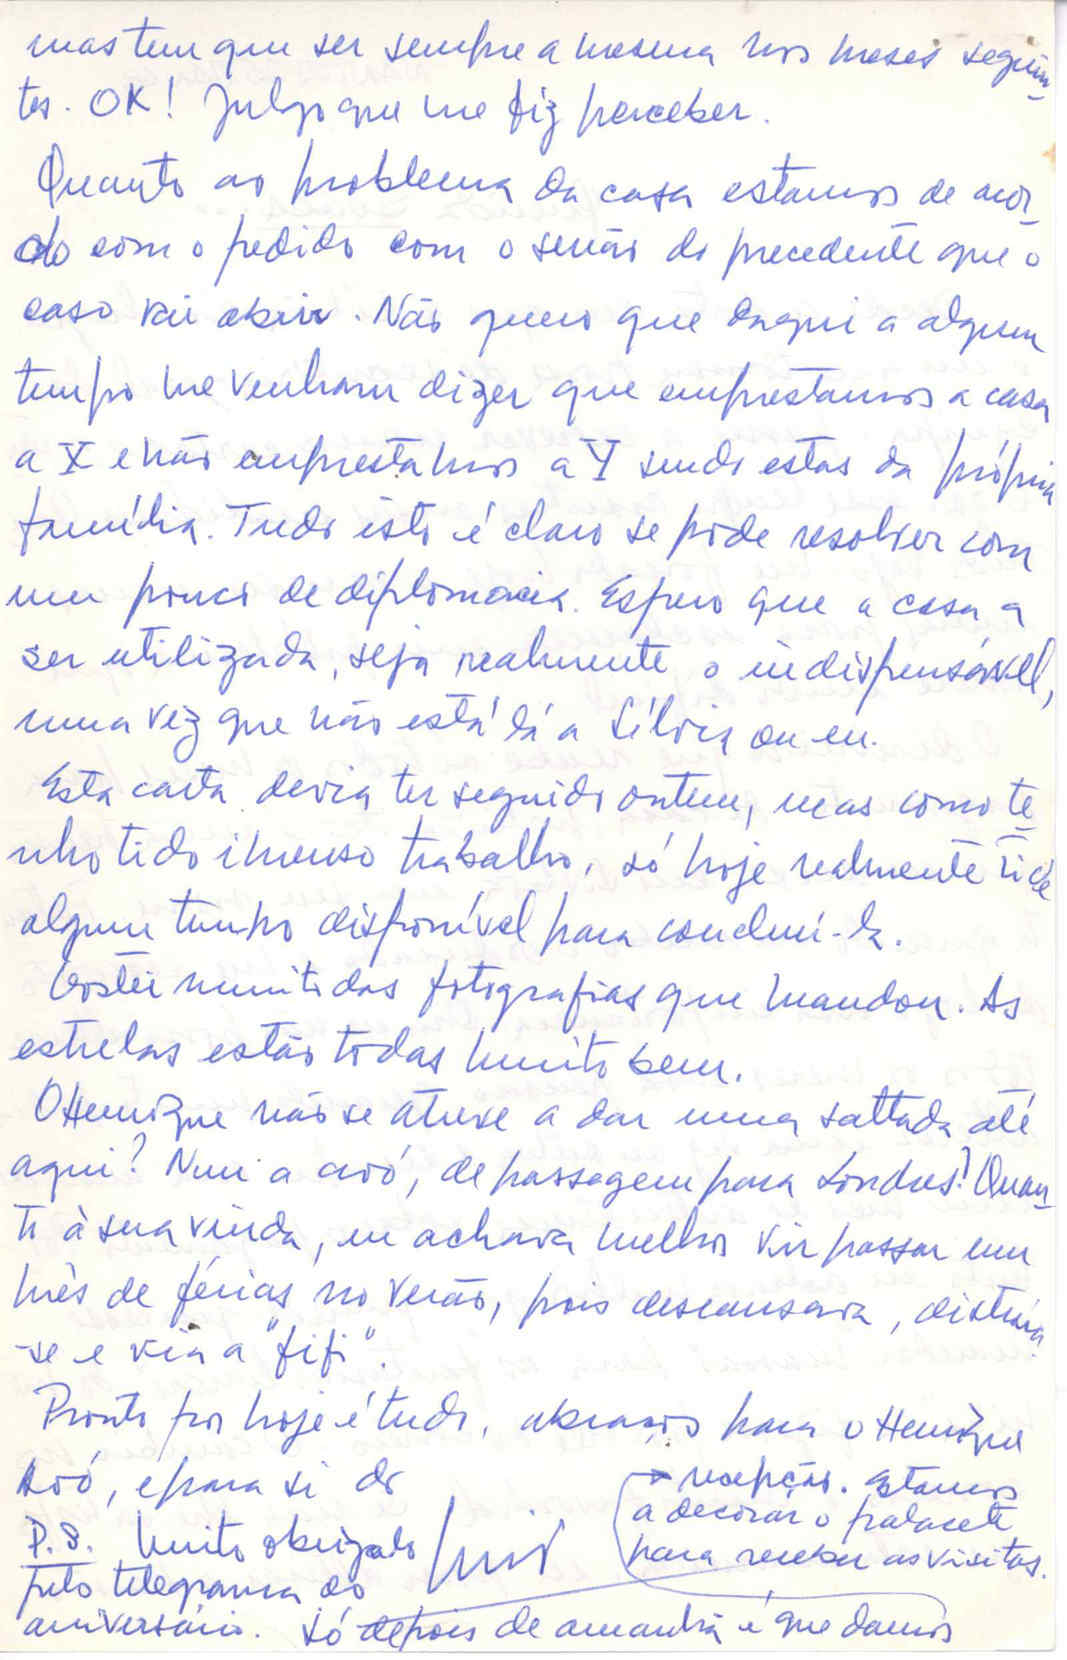 mas tem que ser sempre a mesma nos meses seguin-
tes. OK! Julgo que me fiz perceber.
Quanto ao problema da casa estamos de acor-
do com o pedido com o senão do precedente que o
caso vai abrir. Não quero que daqui a algum
tempo me venham dizer que emprestamos a casa
a X e não emprestamos a Y sendo estas da própria
família. Tudo isto é claro se pode resolver com
um pouco de diplomacia. Espero que a casa a
ser utilizada, seja realmente o indispensável,
uma vez que não está lá a Sílvia ou eu.
Esta carta devia ter seguido ontem, mas como te-
nho tido imenso trabalho, só hoje realmente tive
algum tempo disponível para concluí-la.
Gostei muito das fotografias que mandou. As
estrelas estão todas muito bem.
O Henrique não se atreve a dar uma saltada até
aqui? Nem a avó, de passagem para Londres? Quan-
to à sua vinda, eu achava melhor vir passar um
mês de férias no verão, pois descansava, distraía
-se e via a "fifi".
Pronto por hoje é tudo, abraços para o Henrique
avó, e para si do
Luís
P.S. Muito obrigado
pelo telegrama do
aniversário. Só depois de amanhã é que damos
→ recepção. Estamos
a decorar o palacete
para receber as visitas.